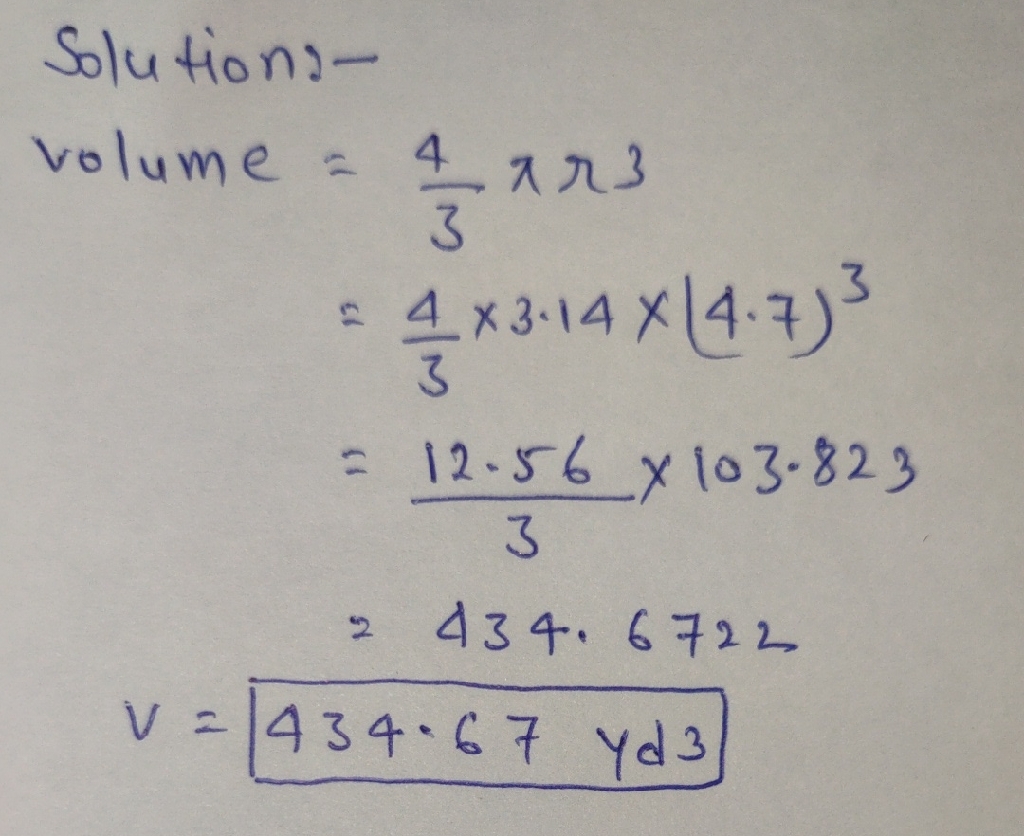 Solution:-
volume = 4/3 πr3
= 4/3 x 3.14 x (4.7)³
= 12.56/3 x 103.823
= 434.6722
V = 434.67 yd3